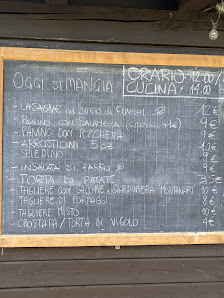 OGGI SI MANGIA
ORARIO 12:00/
CUCINA: 14:00
- LASAGNE SUGO DI FUNGHI 12€
- PANINO CON SALAMELLA
- PANINO CON PORCHETTA
- ARROSTICINI 5 pz
- SPIEDINO
- INSALATA DI FARRO
- TORTA DI PATATE 3,5€
- TAGLIERE CON SALUMI E GIARDINIERA MONTANARI 10€
- TAGLIERE DI FORMAGGI 8€
- TAGLIERE MISTO 10€
- CROSTATA/TORTA DI NIGOLO 4€